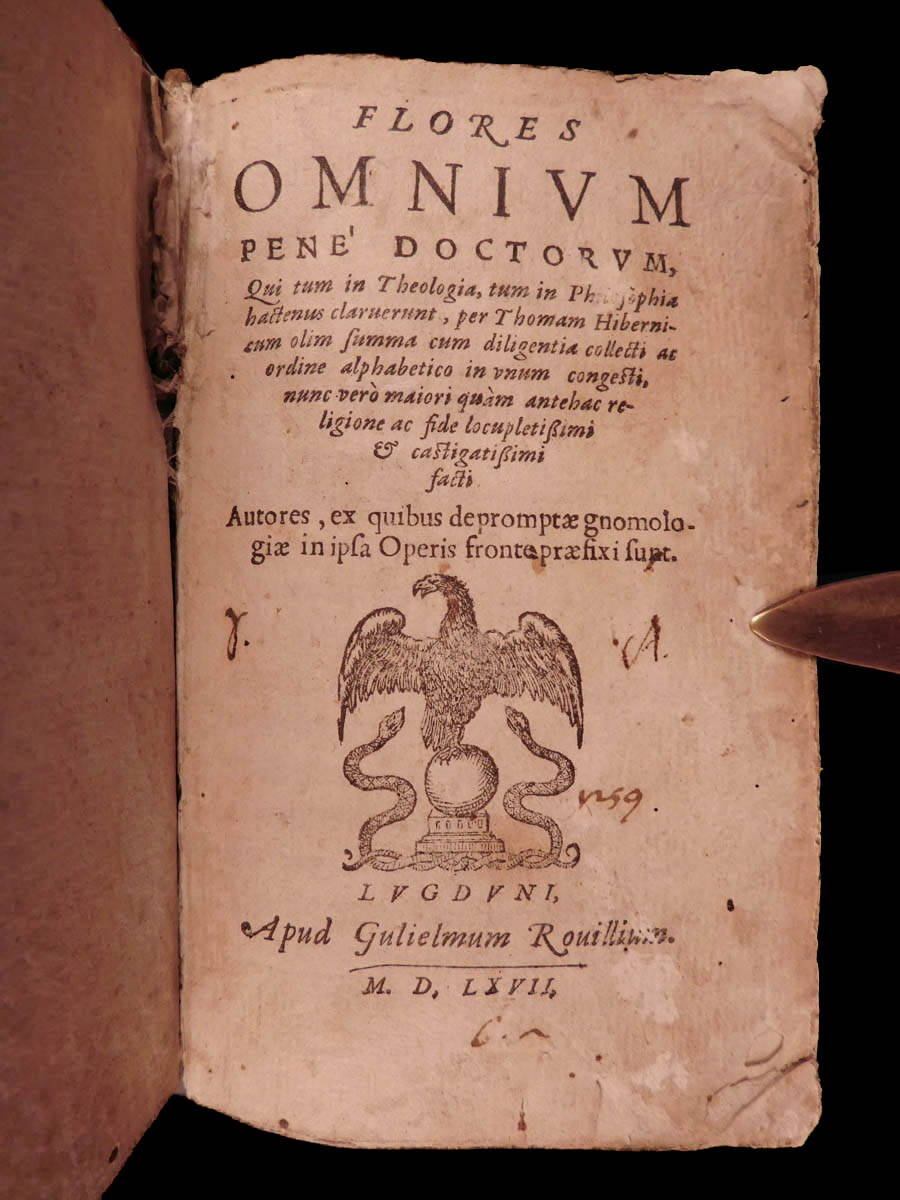 FLORES
OMNIVM
PENE' DOCTORVM,
Qui tum in Theologia, tum in Philosophia
hactenus claruerunt, per Thomam Hiberni-
cum olim summa cum diligentia collecti ac
ordine alphabetico in vnum congesti,
nunc verò maiori quàm antehac re-
ligione ac fide locupletißimi
& castigatißimi
facti
Autores, ex quibus depromptæ gnomolo-
giæ in ipsa Operis fronte præfixi sunt.
LVGDVNI,
Apud Gulielmum Rouillium.
M. D. LXVII,